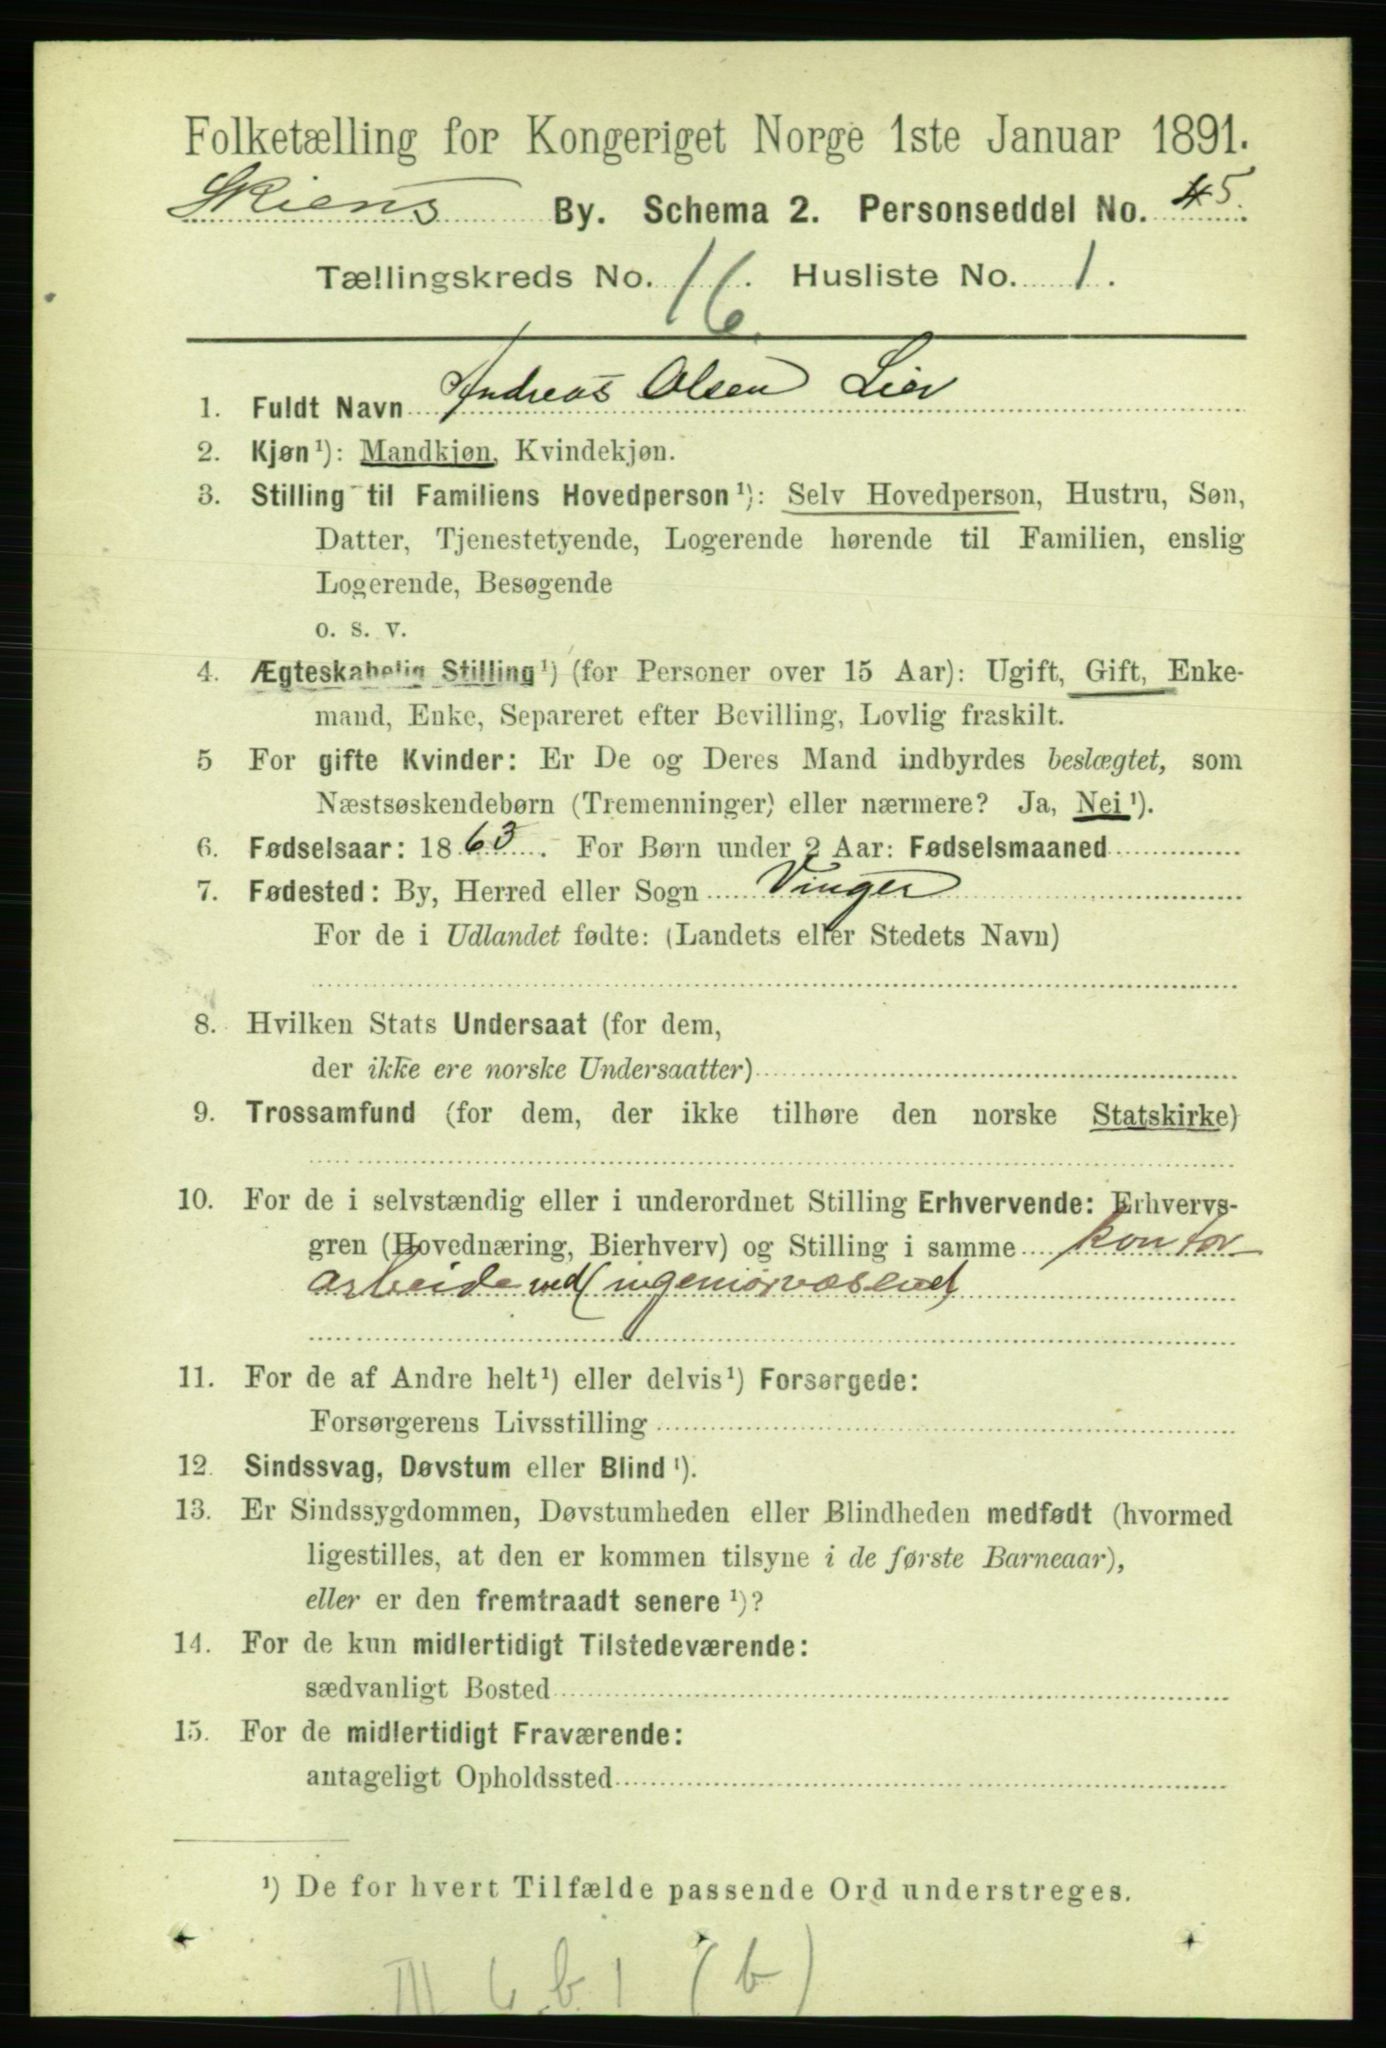 Folketælling for Kongeriget Norge 1ste Januar 1891.
Skiens By. Schema 2. Personseddel No. 45.
Tællingskreds No. 16. Husliste No. 1.
1. Fuldt Navn Andreas Olsen Lier
2. Kjøn¹): Mandkjøn, Kvindekjøn.
3. Stilling til Familiens Hovedperson¹): Selv Hovedperson, Hustru, Søn,
Datter, Tjenestetyende, Logerende hørende til Familien, enslig
Logerende, Besøgende
o. s. v.
4. Ægteskabelig Stilling¹) (for Personer over 15 Aar): Ugift, Gift, Enke-
mand, Enke, Separeret efter Bevilling, Lovlig fraskilt.
5 For gifte Kvinder: Er De og Deres Mand indbyrdes beslægtet, som
Næstsøskendebørn (Tremenninger) eller nærmere? Ja, Nei¹).
6. Fødselsaar: 1863. For Børn under 2 Aar: Fødselsmaaned
7. Fødested: By, Herred eller Sogn Vinger
For de i Udlandet fødte: (Landets eller Stedets Navn)
8. Hvilken Stats Undersaat (for dem,
der ikke ere norske Undersaatter)
9. Trossamfund (for dem, der ikke tilhøre den norske Statskirke)
10. For de i selvstændig eller i underordnet Stilling Erhvervende: Erhvervs-
gren (Hovednæring, Bierhverv) og Stilling i samme kontor
arbeide ved (ingeniørvæsenet)
11. For de af Andre helt¹) eller delvis¹) Forsørgede:
Forsørgerens Livsstilling
12. Sindssvag, Døvstum eller Blind¹).
13. Er Sindssygdommen, Døvstumheden eller Blindheden medfødt (hvormed
ligestilles, at den er kommen tilsyne i de første Barneaar),
eller er den fremtraadt senere¹)?
14. For de kun midlertidigt Tilstedeværende:
sædvanligt Bosted
15. For de midlertidigt Fraværende:
antageligt Opholdssted
¹) De for hvert Tilfælde passende Ord understreges.
III 6 b 1 (b)